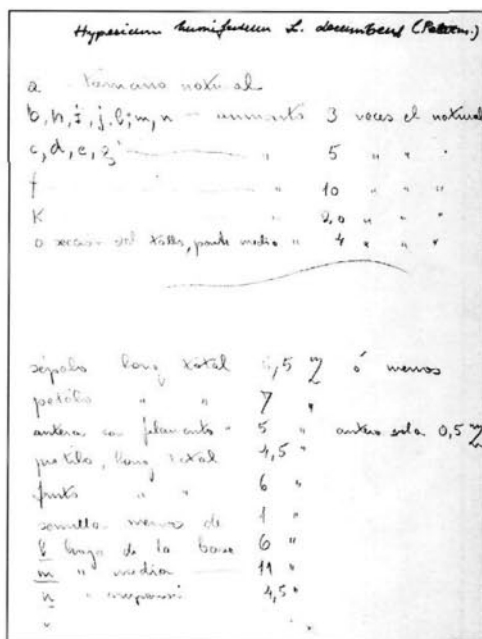 Hypericum humifusum L. decumbens (Peterm.)
a tamaño natural
b, h, i, j, l, m, n — aumento 3 veces el natural
c, d, e, g — " 5 " " "
f — " 10 " " "
K " 20 " " "
o sección del tallo, parte media " 4 " " "
sépalo long total 6,5 ó menos
petálo " " 7 "
antera con filamento " 5 " antera sola 0,5
pistilo, long total 4,5 "
fruto " " 6 "
semilla menos de 1 "
l hoja de la base 6 "
m " media — 11 "
n " 4,5 "